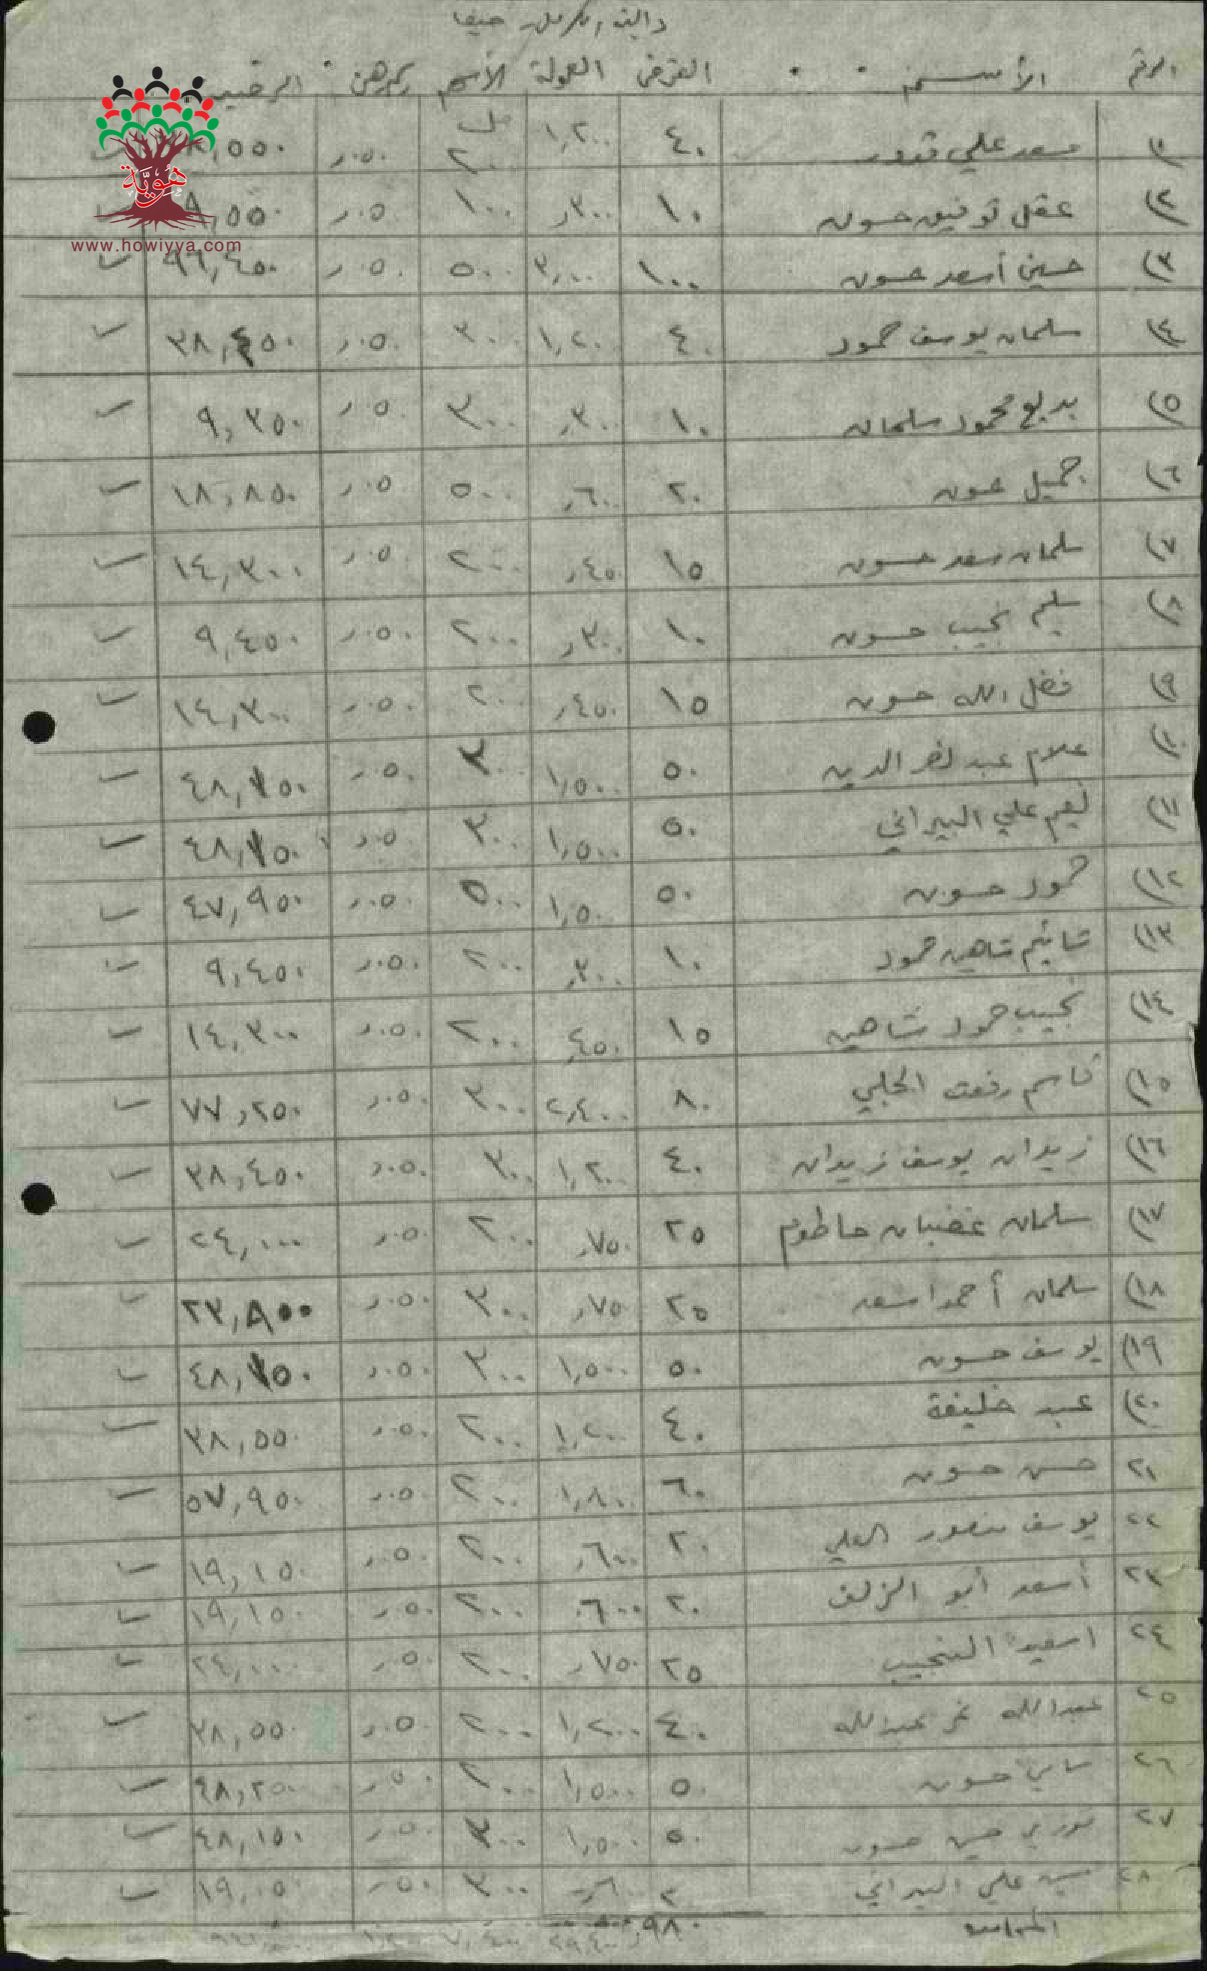 دالية الكرمل حيفا
الرقم الاسم القرض العمولة الأسهم رسم رهن الرصيد
(١ سعد علي قدور ٤٠ ١,٢٠٠ مل ٢٠٠ ,٠٥٠ ,٥٥٠
(٢ عقل توفيق حسون ١٠ ,٣٠٠ ١٠٠ ,٠٥٠ ,٥٥٠
(٣ حسين أسعد حسون ١٠٠ ٣,٠٠٠ ٥٠٠ ,٠٥٠ ٩٦,٤٥٠
(٤ سلمان يوسف حمود ٤٠ ١,٢٠٠ ٣٠٠ ,٠٥٠ ٣٨,٤٥٠
(٥ بديع محمود سلمان ١٠ ,٣٠٠ ٣٠٠ ,٠٥٠ ٩,٣٥٠
(٦ جميل حسون ٢٠ ,٦٠٠ ٥٠٠ ,٠٥٠ ١٨,٨٥٠
(٧ سلمان سعد حسون ١٥ ,٤٥٠ ٢٠٠ ,٠٥٠ ١٤,٣٠٠
(٨ سليم نجيب حسون ١٠ ,٣٠٠ ٢٠٠ ,٠٥٠ ٩,٤٥٠
(٩ فضل الله حسون ١٥ ,٤٥٠ ٢٠٠ ,٠٥٠ ١٤,٣٠٠
(١٠ علام عبد نصر الدين ٥٠ ١,٥٠٠ ٣٠٠ ,٠٥٠ ٤٨,١٥٠
(١١ نعيم علي البيراني ٥٠ ١,٥٠٠ ٣٠٠ ,٠٥٠ ٤٨,١٥٠
(١٢ حمود حسون ٥٠ ١,٥٠٠ ٥٠٠ ,٠٥٠ ٤٧,٩٥٠
(١٣ شاهين حمود ١٠ ,٣٠٠ ٢٠٠ ,٠٥٠ ٩,٤٥٠
(١٤ نجيب حمود شاهين ١٥ ,٤٥٠ ٢٠٠ ,٠٥٠ ١٤,٣٠٠
(١٥ قاسم رفعت الحلبي ٨٠ ٢,٤٠٠ ٣٠٠ ,٠٥٠ ٧٧,٢٥٠
(١٦ زيدان يوسف زيدان ٤٠ ١,٢٠٠ ٣٠٠ ,٠٥٠ ٣٨,٤٥٠
(١٧ سلمان غضبان حاطوم ٢٥ ,٧٥٠ ٢٠٠ ,٠٥٠ ٢٤,٠٠٠
(١٨ سلمان أحمد اسعد ٢٥ ,٧٥٠ ٣٠٠ ,٠٥٠ ٢٣,٨٠٠
(١٩ يوسف حسون ٥٠ ١,٥٠٠ ٣٠٠ ,٠٥٠ ٤٨,١٥٠
(٢٠ عبد خليفة ٤٠ ١,٢٠٠ ٢٠٠ ,٠٥٠ ٣٨,٥٥٠
٢١ حسن حسون ٦٠ ١,٨٠٠ ٢٠٠ ,٠٥٠ ٥٧,٩٥٠
٢٢ يوسف منصور العلي ٢٠ ,٦٠٠ ٢٠٠ ,٠٥٠ ١٩,١٥٠
٢٣ أسعد ابو الزلف ٢٠ ,٦٠٠ ٢٠٠ ,٠٥٠ ١٩,١٥٠
٢٤ اسعيد النجيب ٢٥ ,٧٥٠ ٢٠٠ ,٠٥٠ ٢٤,٠٠٠
٢٥ عبدالله نمر عبدالله ٤٠ ١,٢٠٠ ٢٠٠ ,٠٥٠ ٣٨,٥٥٠
٢٦ سامي حسون ٥٠ ١,٥٠٠ ٢٠٠ ,٠٥٠ ٤٨,٢٥٠
٢٧ حسين حسون ٥٠ ١,٥٠٠ ٣٠٠ ,٠٥٠ ٤٨,١٥٠
٢٨ علي البيراني ٢٠ ,٦٠٠ ٣٠٠ ,٠٥٠ ١٩,٠٥٠
٩٨٠ ٢٩,٤٠٠
هوية
www.howiyya.com